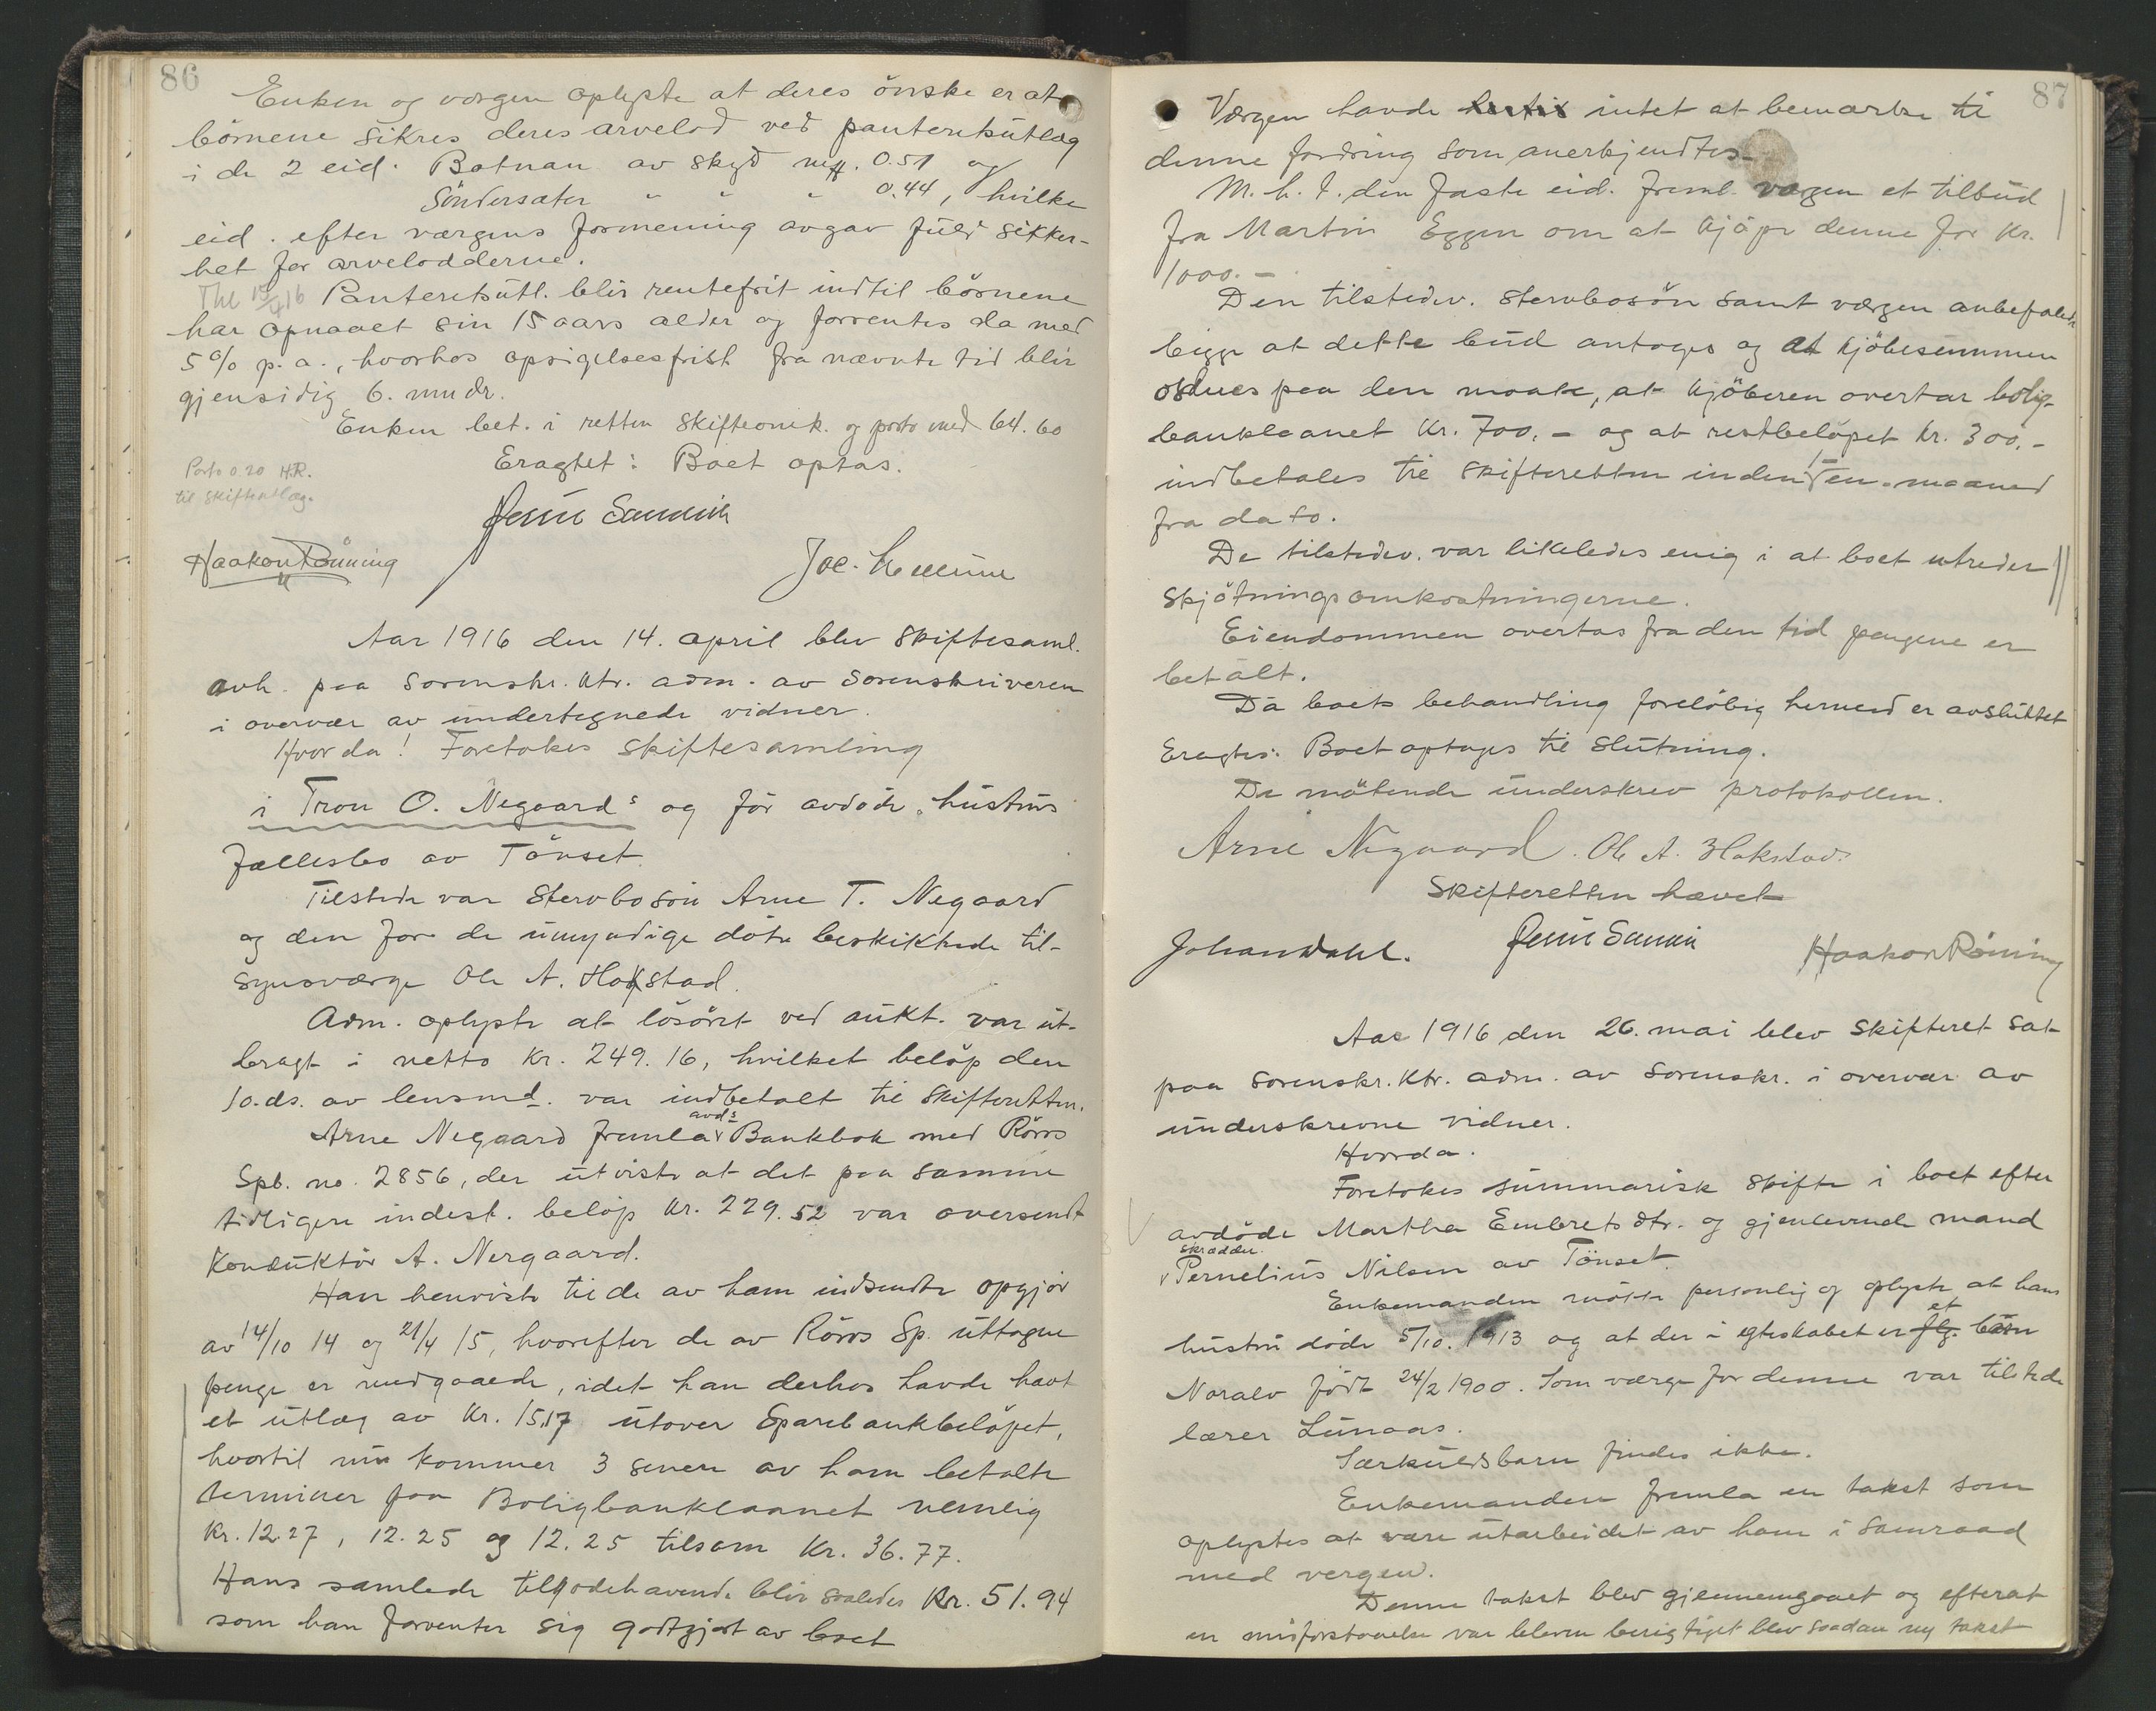 86
Enken og værgen oplyste at deres önske er at
börnene sikres deres arvelod ved panteretsutlæg
i de 2 eid. Botnan av skyld mk. 0.51 og
Söndersæter " " " 0.44, hvilke
eid. efter værgens formening avgav fuld sikker-
het for arvelodderne.
Thl 15/4 16 Panteretsutl. blir rentefrit indtil börnene
har opnaaet sin 15 aars alder og forrentes da med
5 % p. a., hvorhos opsigelsesfrist fra nævnte tid blir
gjensidig 6. mndr.
Enken bet. i retten skifteomk. og porto med 64.60
Porto 0.20 H.R.
til skifteutlæg.
Eragtet: Boet optas.
Haakon Rönning
Aar 1916 den 14. april blev skiftesaml.
avh. paa sorenskr. ktr. adm. av sorenskriveren
i overvær av undertegnede vidner.
Hvorda! Foretokes skiftesamling
i Tron O. Negaards og för avdöde hustrus
fællesbo av Tönset.
Tilstede var stervbosön Arne T. Negaard
og den for de umyndige dötre beskikkede til-
synsværge Ole A. Hokstad.
Adm. oplyste at lösöret ved aukt. var ut-
bragt i netto kr. 249.16, hvilket belöp den
10. ds. av lensmd. var indbetalt til skifteretten.
Arne Negaard fremla avds Bankbok med Röros
Spb. no. 2856, der utviste at det paa samme
tidligere indest. belöp kr. 229.52 var oversendt
Konduktör A. Nergaard.
Han henviste til de av ham indsendte opgjör
av 14/10 14 og 21/4 15, hvorefter de av Röros Sp. uttagne
penge er medgaaede, idet han derhos havde havt
et utlæg av kr. 15.17 utover Sparebankbelöpet,
hvortil nu kommer 3 senere av ham betalte
terminer paa Boligbanklaanet nemlig
kr. 12.27, 12.25 og 12.25 tilsam kr. 36.77.
Hans samlede tilgodehavende blir saaledes kr. 51.94
som han forventer sig godtgjort av boet
87
Værgen havde intet at bemærke til
denne fordring som anerkjendtes.
M. h. t. den faste eid. freml. værgen et tilbud
fra Martin Eggen om at kjöpe denne for kr.
1000.-
Den tilstedev. stervbosön samt værgen anbefalede
begge at dette bud antages og at kjöbesummen
ordnes paa den maate, at kjöberen overtar bolig-
banklaanet kr. 700,- og at restbelöpet kr. 300,-
indbetales til skifteretten inden en maaned
fra dato.
De tilstedev. var likeledes enig i at boet utreder
skjötningsomkostningerne.
Eiendommen overtas fra den tid pengene er
betalt.
Da boets behandling forelöbig hermed er avsluttet
Eragtes: Boet optages til slutning.
De mötende underskrev protokollen.
Arne Negaard. Ole A. Hokstad.
Skifteretten hævet
Johan Dahl. Haakon Röning
Aar 1916 den 26. mai blev skifteret sat
paa sorenskr. ktr. adm. av sorenskr. i overvær av
underskrevne vidner.
Hvorda.
Foretokes summarisk skifte i boet efter
avdöde Martha Embretsdtr. og gjenlevende mand
skrædder Pernelius Nilsen av Tönset.
Enkemanden mötte personlig og oplyste at hans
hustru döde 5/10. 1913 og at der i egteskabet er flg. et barn
Noralv födt 24/2 1900. Som værge for denne var tilstede
lærer Lunaas.
Særkuldsbarn findes ikke.
Enkemanden fremla en takst som
oplystes at være utarbeidet av ham i samraad
med vergen.
Denne takst blev gjennemgaaet og efterat
en misforstaaelse var bleven berigtiget blev saadan ny takst